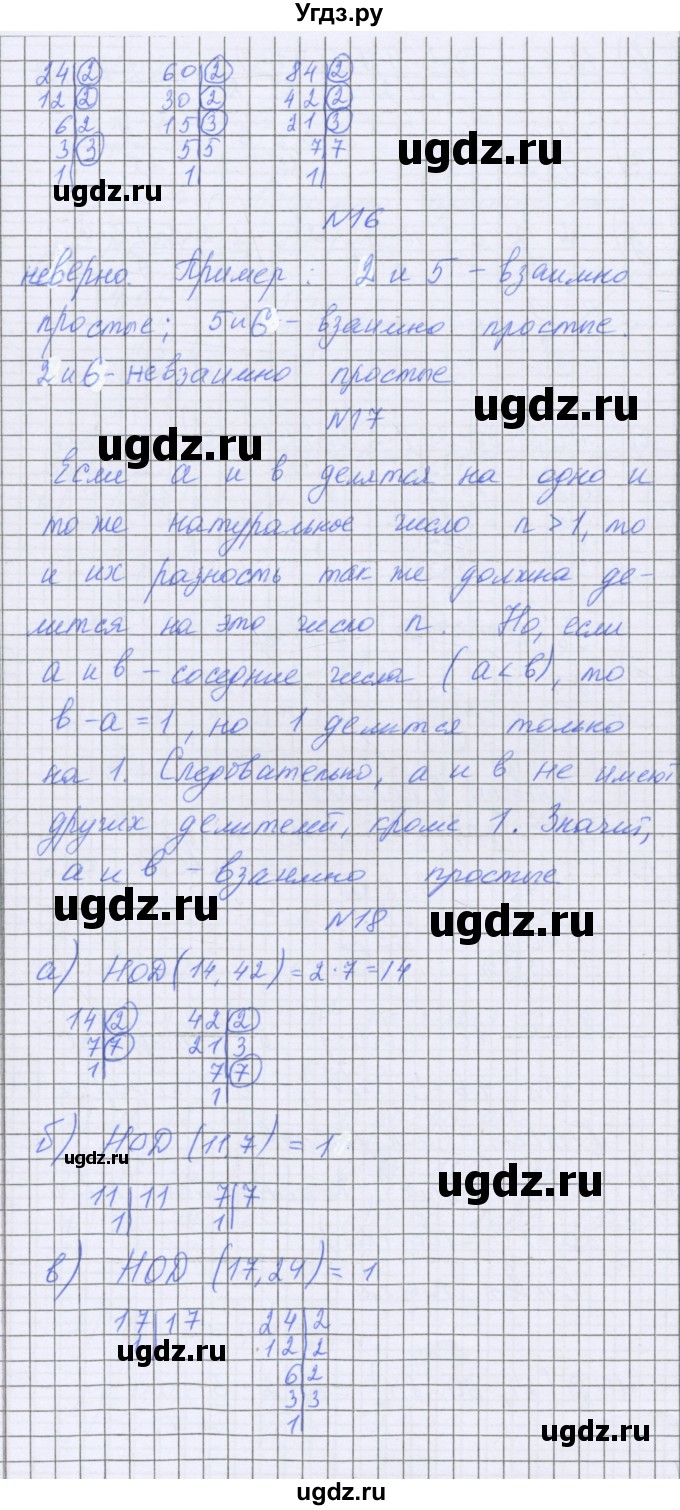 Угдз.ру
24|2 60|2 84|2
12|2 30|2 42|2
6|2 15|3 21|3
3|3 5|5 7|7
1| 1| 1|
ugdz.ru
ugdz.ru
N16
неверно. Пример: 2 и 5 – взаимно
простые; 5 и 6 – взаимно простые.
2 и 6 – невзаимно простые
ugdz.ru
N17
ugdz.ru
Если a и в делятся на одно и
то же натуральное число n > 1, то
и их разность так же должна де-
лится на это число n. Но, если
a и в – соседние числа (a < в), то
в – a = 1, но 1 делится только
на 1. Следовательно, a и в не имеют
других делителей, кроме 1. Значит,
a и в – взаимно простые
ugdz.ru
N18
ugdz.ru
а) НОД (14, 42) = 2 · 7 = 14
14|2 42|2
7|7 21|3
1| 7|7
1|
б) НОД (11, 7) = 1
ugdz.ru
11|11 7|7
1| 1|
ugdz.ru
в) НОД (17, 24) = 1
17|17 24|2
ugdz.ru 12|2
6|2
3|3
1|
ugdz.ru
ugdz.ru